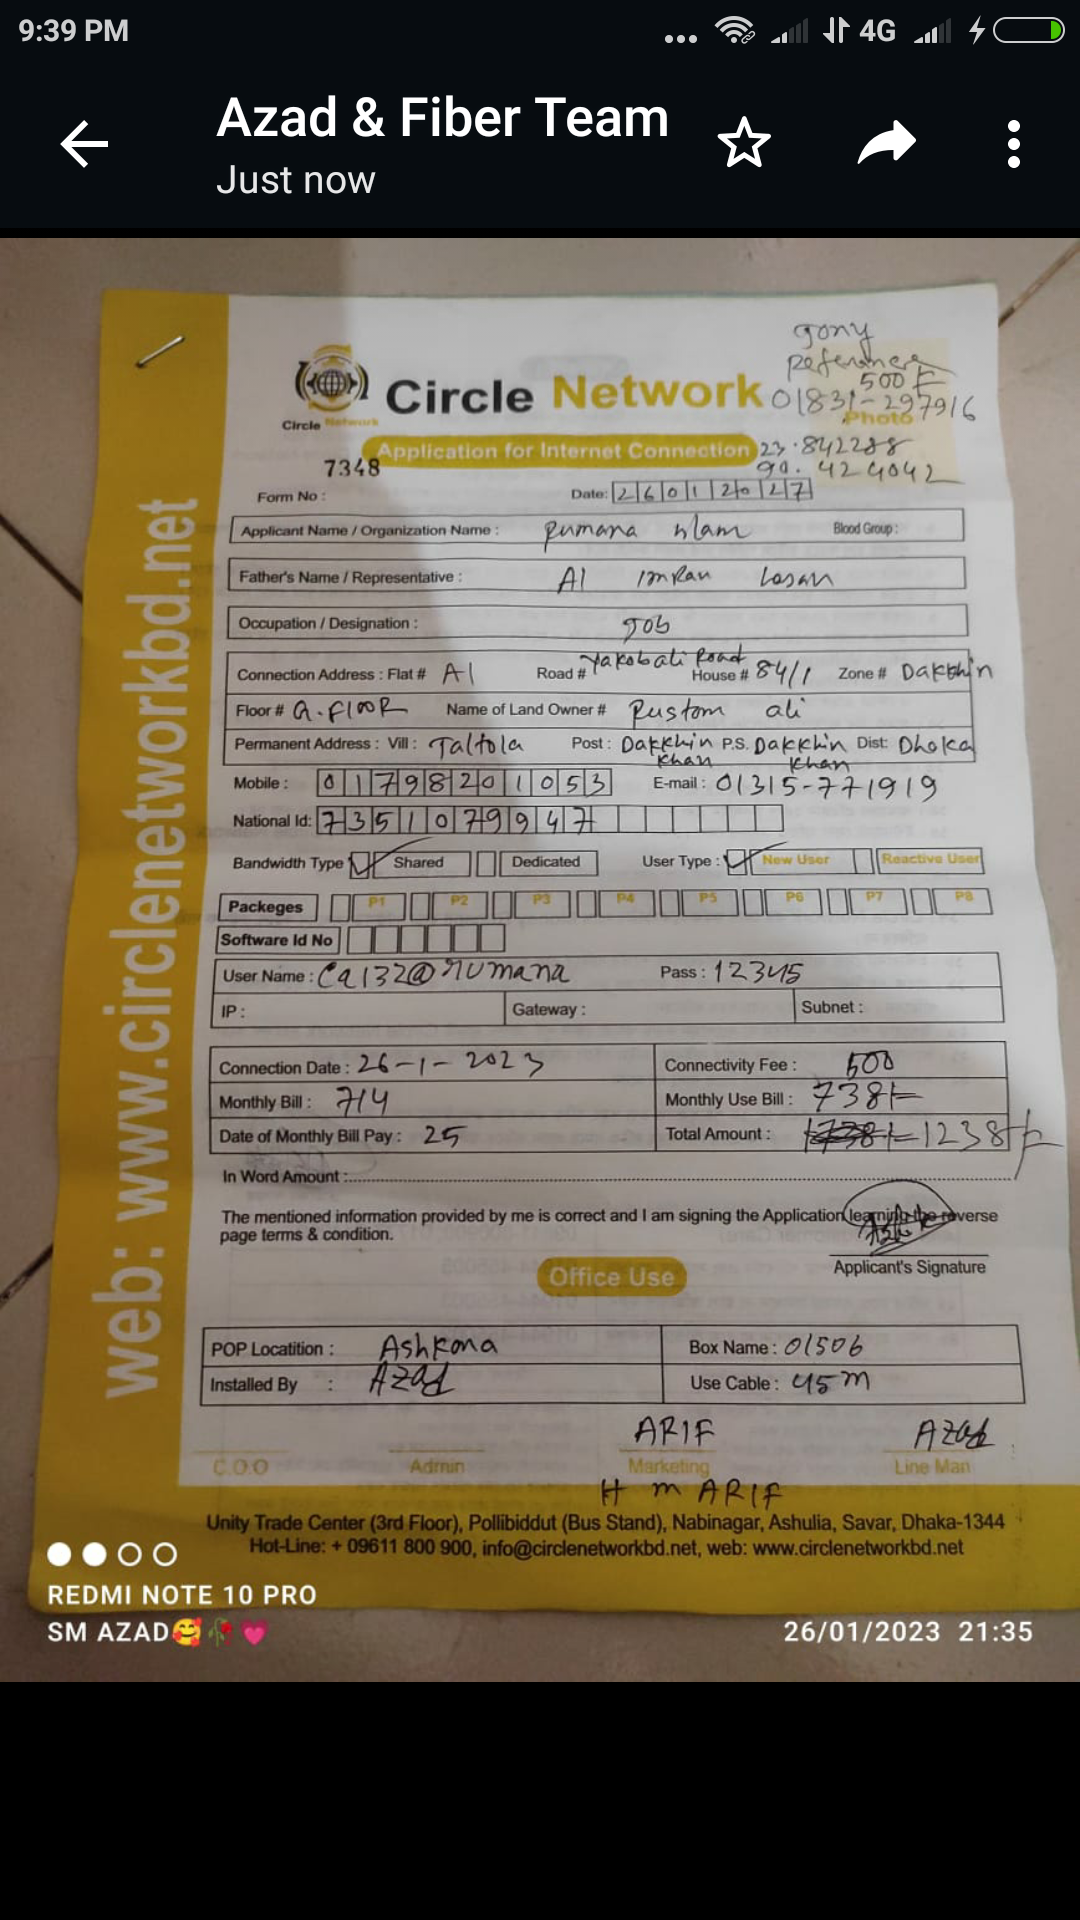 9:39 PM
4G
Azad & Fiber Team
Just now
gony
Reference
500
01831-297916
Photo
23.842288
90.424042
Circle Network
Circle Network
Application for Internet Connection
7348
Form No :
Date: 26012027
Applicant Name / Organization Name : Rumana Islam Blood Group :
Father's Name / Representative : Al Imran Hasan
Occupation / Designation : Job
Connection Address : Flat # A1 Road # Yakobali Road House # 84/1 Zone # Dakkhin
Floor # G.FlooR Name of Land Owner # Rustom ali
Permanent Address : Vill : Taltola Post : Dakkhin Khan P.S. Dakkhin Khan Dist: Dhaka
Mobile : 01798201053 E-mail : 01315-771919
National Id: 7351079947
Bandwidth Type Shared Dedicated User Type : New User Reactive User
Packeges P1 P2 P3 P4 P5 P6 P7 P8
Software Id No
User Name : Ca132@rumana Pass : 12345
IP : Gateway : Subnet :
Connection Date : 26-1-2023 Connectivity Fee : 500
Monthly Bill : 714 Monthly Use Bill : 738/=
Date of Monthly Bill Pay : 25 Total Amount : 1238/=
In Word Amount :
The mentioned information provided by me is correct and I am signing the Application learning the reverse
page terms & condition.
Applicant's Signature
Office Use
POP Locatition : Ashkona Box Name : 01506
Installed By : Azad Use Cable : 45m
ARIF Azad
C.O.O Admin Marketing Line Man
H m ARIF
Unity Trade Center (3rd Floor), Pollibiddut (Bus Stand), Nabinagar, Ashulia, Savar, Dhaka-1344
Hot-Line: + 09611 800 900, info@circlenetworkbd.net, web: www.circlenetworkbd.net
web: www.circlenetworkbd.net
REDMI NOTE 10 PRO
SM AZAD🥰🥀💗
26/01/2023 21:35